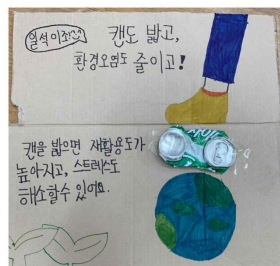 일석이조
캔도 밟고,
환경오염도 줄이고!
캔을 밟으면 재활용도가
높아지고, 스트레스도
해소할수 있어요.